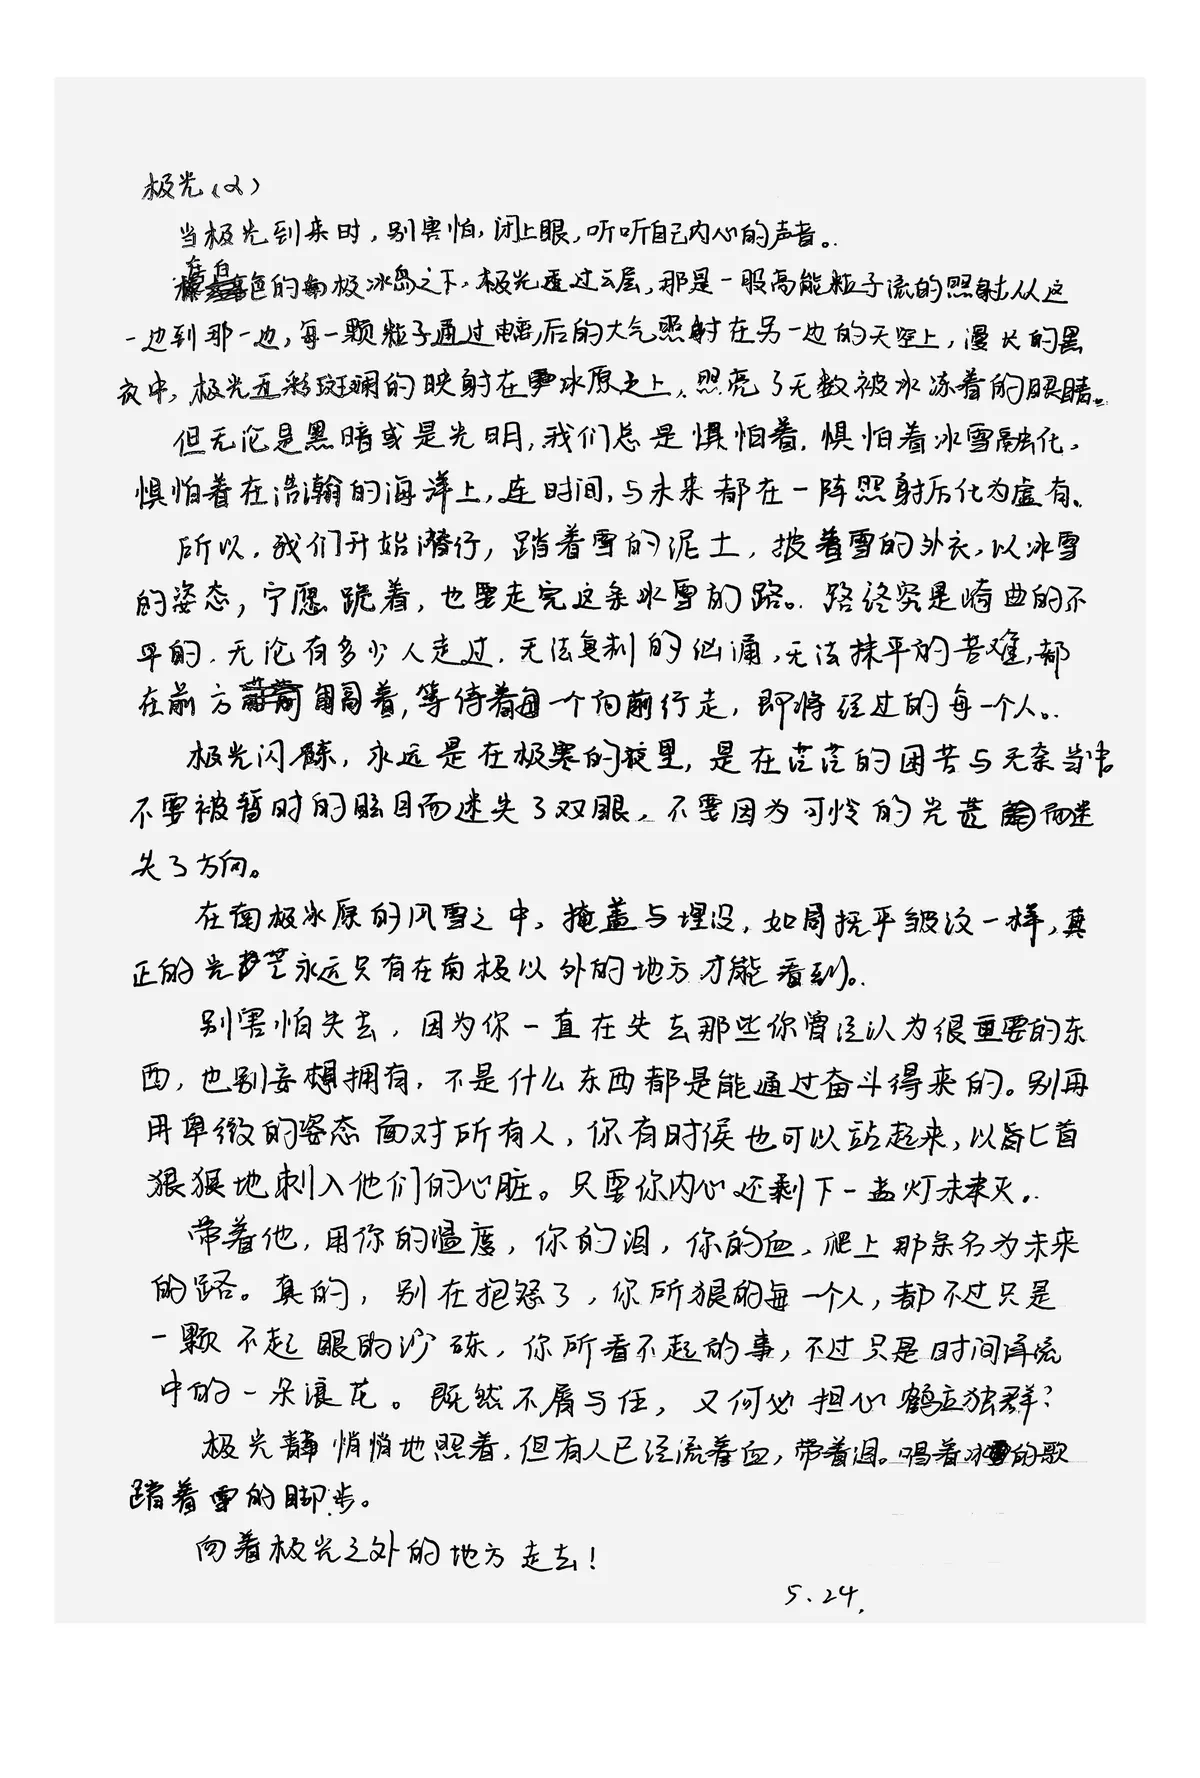 极光(2)
当极光到来时,别害怕,闭上眼,听听自己内心的声音。
在白色的南极冰岛之下,极光透过云层,那是一股高能粒子流的照射,从这
一边到那一边,每一颗粒子通过电离后的大气照射在另一边的天空上,漫长的黑
夜中,极光五彩斑斓的映射在冰原之上,照亮了无数被冰冻着的眼睛。
但无论是黑暗或是光明,我们总是惧怕着,惧怕着冰雪融化,
惧怕着在浩瀚的海洋上,连时间,与未来都在一阵照射后化为虚有。
所以,我们开始潜行,踏着雪的泥土,披着雪的外衣,以冰雪
的姿态,宁愿跪着,也要走完这条冰雪的路。路终究是崎曲的不
平的,无论有多少人走过,无法复制的汹涌,无法抹平的苦难,都
在前方着,等待着每一个向前行走,即将经过的每一个人。
极光闪烁,永远是在极寒的夜里,是在茫茫的困苦与无奈当中
不要被暂时的眩目而迷失了双眼,不要因为可怜的光芒而迷
失了方向。
在南极冰原的风雪之中,掩盖与埋没,如同抚平皱纹一样,真
正的光芒永远只有在南极以外的地方才能看到。
别害怕失去,因为你一直在失去那些你曾经认为很重要的东
西,也别妄想拥有,不是什么东西都是能通过奋斗得来的。别再
用卑微的姿态面对所有人,你有时候也可以站起来,以匕首
狠狠地刺入他们的心脏。只要你内心还剩下一盏灯未来灭。
带着他,用你的温度,你的泪,你的血,爬上那条名为未来
的路。真的,别在抱怨了,你所狠的每一个人,都不过只是
一颗不起眼的沙砾,你所看不起的事,不过只是时间浮流
中的一朵浪花。既然不屑与任,又何必担心鹤立独群?
极光静悄悄地照着,但有人已经流着血,带着泪。唱着冰雪的歌
踏着雪的脚步。
向着极光之外的地方走去!
5.24.